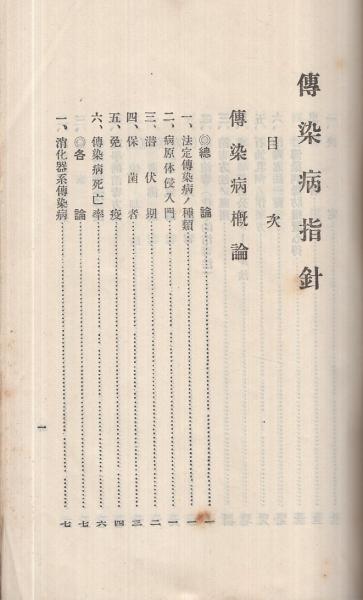 傳染病指針
目次
傳染病概論
◎總論……一
一、法定傳染病ノ種類……一
二、病原体侵入門……一
三、潜伏期……二
四、保菌者……三
五、免疫……四
六、傳染病死亡率……六
◎各論……七
一、消化器系傳染病……七
一